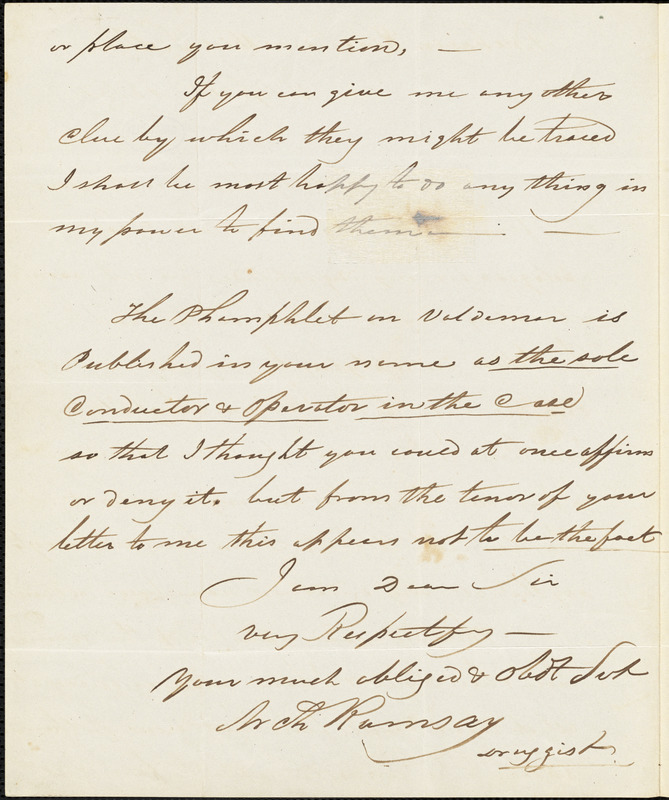 or place you mention, —
If you can give me any other
Clue by which they might be traced
I shall be most happy to do any thing in
my power to find them — . —
The Phamphlet on Valdemar is
Published in your name as the sole
Conductor & Operator in the Case
so that I thought you could at once affirm
or deny it. but from the tenor of your
letter to me this appears not to be the fact
I am Dear Sir
very Respectfy —
Your much obliged & obdt Svt
Arch Ramsay
Druggist